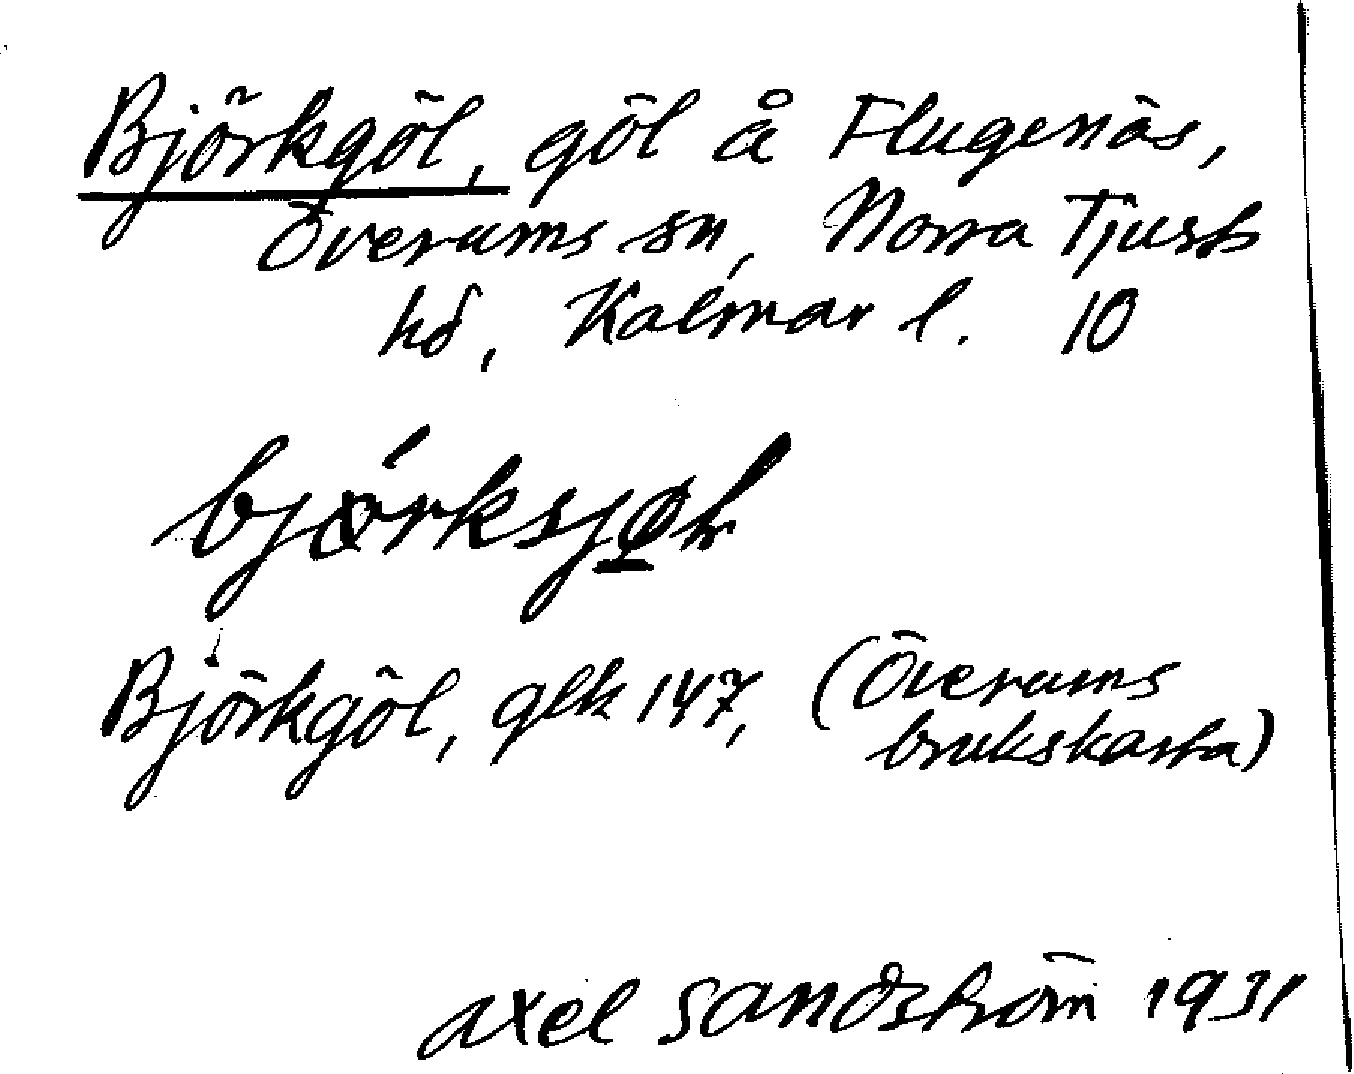 Björkgöl, göl å Flugenäs,
Överums sn, Norra Tjusts
hd, Kalmar l. 10
Björkgöl, glk 147, (Överums
brukskarta)
Axel Sandström 1931